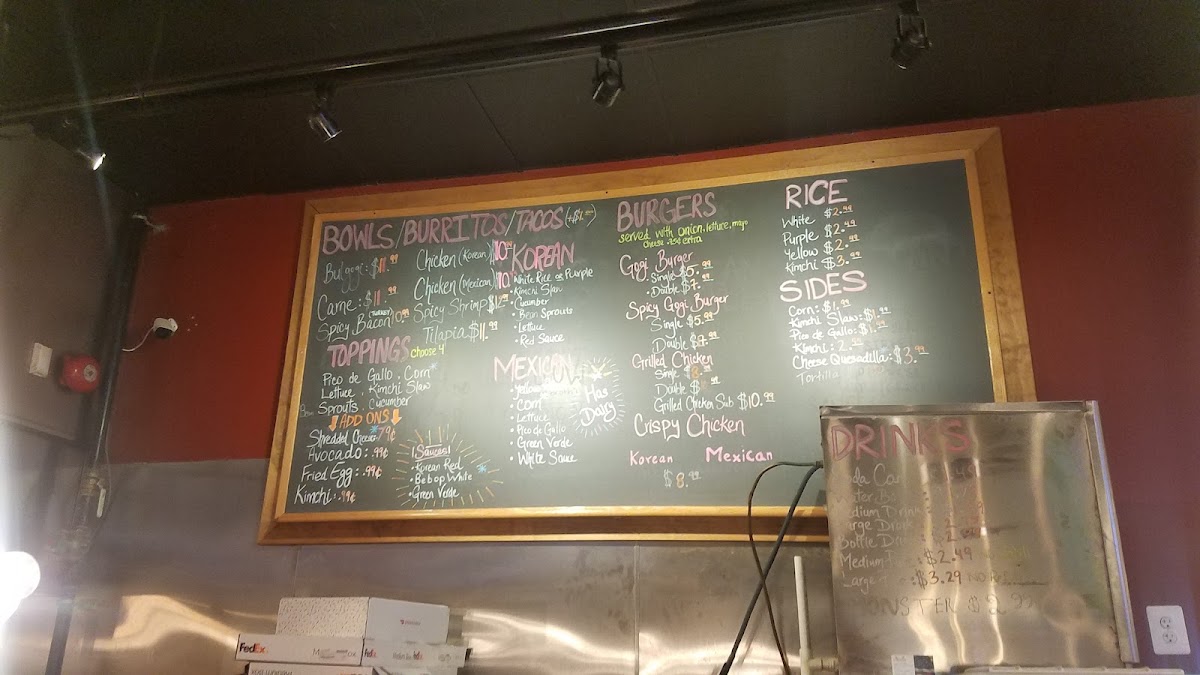 BOWLS/BURRITOS/TACOS
Bulgogi: $11.99
Carne: $11.99
Spicy Bacon 10.99
Chicken (Korean) $10.99
Chicken (Mexican) $10
Spicy Shrimp $12
Tilapia $11.99
TOPPINGS choose 4
Pico de Gallo . Corn
Lettuce . Kimchi Slaw
Bean Sprouts . Cucumber
ADD ONS
Shredded Cheese 79¢
Avocado: .99¢
Fried Egg: .99¢
Kimchi: .99¢
Sauces!
• Korean Red
• Bebop White
• Green Verde
KOREAN
White Rice or Purple
• Kimchi Slaw
• Cucumber
• Bean Sprouts
• Lettuce
• Red Sauce
MEXICAN
• Yellow
• Corn
• Lettuce
• Pico de Gallo
• Green Verde
• White Sauce
* Has
Dairy
BURGERS
served with onion, lettuce, mayo
cheese .50 extra
Gogi Burger
• Single $5.99
• Double $7.99
Spicy Gogi Burger
Single $5.99
Double
Grilled Chicken
Single
Double $
Grilled Chicken Sub $10.99
Crispy Chicken
Korean Mexican
$8.99
RICE
White $2.49
Purple $2.49
Yellow $2.99
Kimchi $3.99
SIDES
Corn: $1.99
Kimchi Slaw: $1.99
Pico de Gallo: $1.99
Kimchi: 2.99
Cheese Quesadilla: $3.99
Tortilla
DRINKS
Medium Drink
Large Drink
Bottle
Medium $2.49
Large $3.29
MONSTER $2.99
FedEx
FedEx